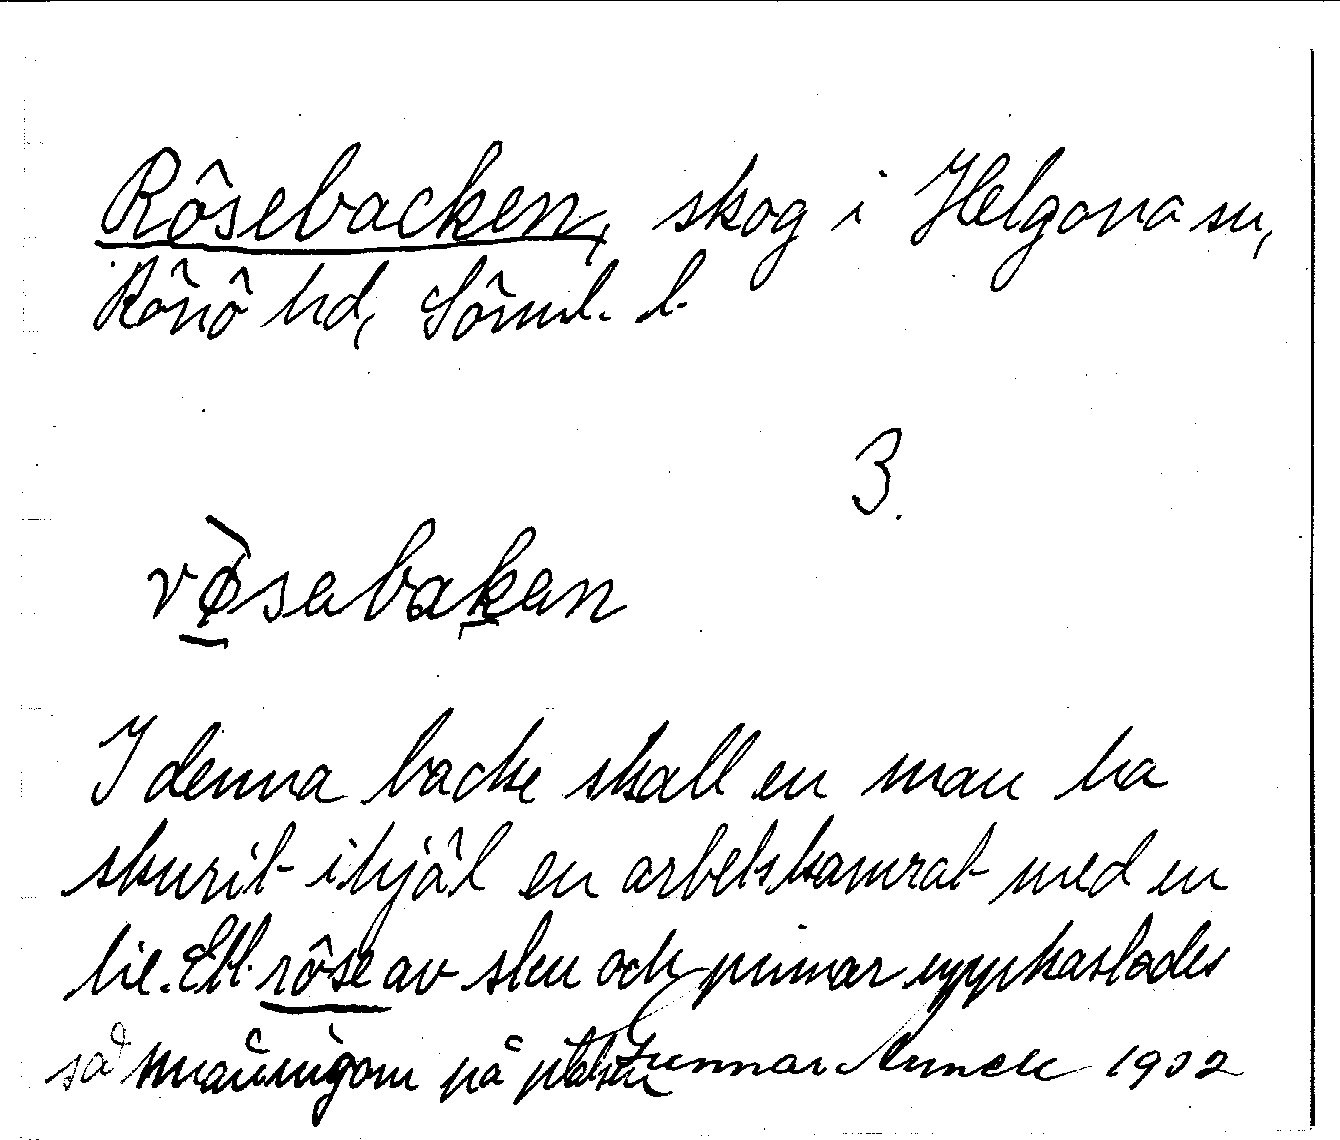 Rösebacken, skog i Helgona sn,
Rönö hd, Sörml. l.
3.
rø̀sabakan
I denna backe skall en man ha
skurit ihjäl en arbetskamrat med en
lie. Ett röse av sten och pinnar uppkastades
så småningom på platsen
Gunnar 1932